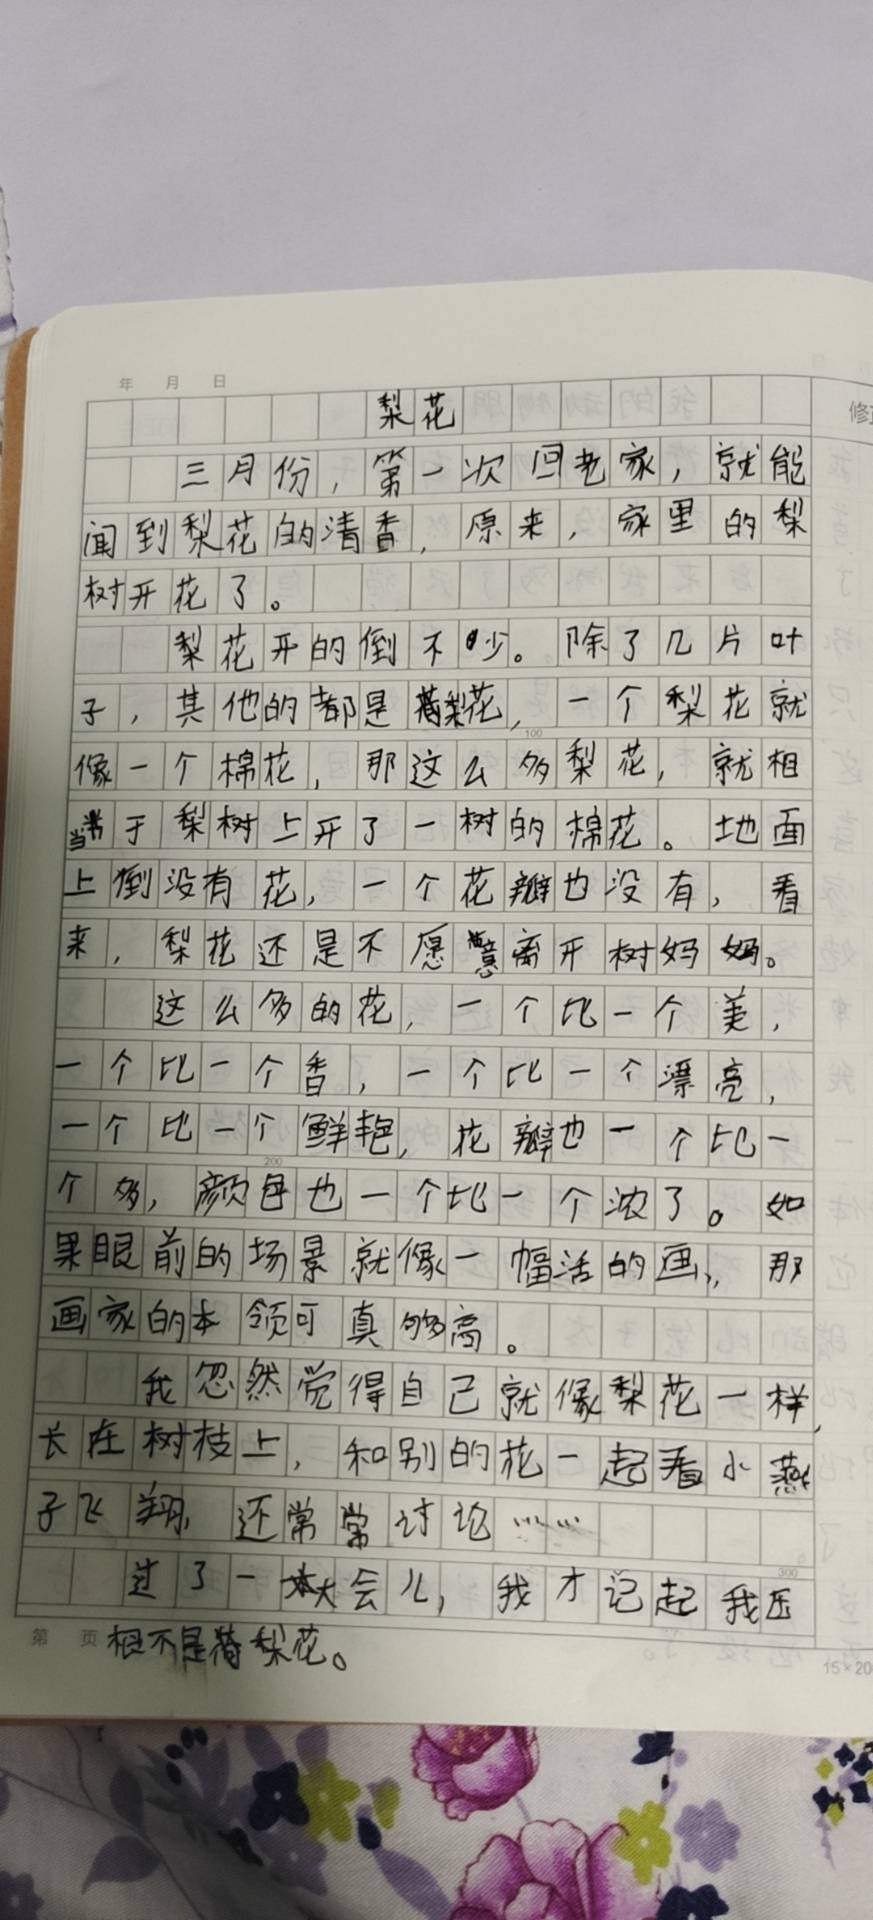 年 月 日
梨花
修
三月份，第一次回老家，就能
闻到梨花的清香，原来，家里的梨
树开花了。
梨花开的倒不少。除了几片叶
子，其他的都是梨花，一个梨花就
像一个棉花，那这么多梨花，就相
当于梨树上开了一树的棉花。地面
100
上倒没有花，一个花瓣也没有，看
来，梨花还是不愿意离开树妈妈。
这么多的花，一个比一个美，
一个比一个香，一个比一个漂亮，
一个比一个鲜艳，花瓣也一个比一
200
个多，颜色也一个比一个浓了。如
果眼前的场景就像一幅活的画，那
画家的本领可真够高。
我忽然觉得自己就像梨花一样，
长在树枝上，和别的花一起看小燕
子飞翔，还常常讨论……
300
过了一大会儿，我才记起我压
根不是梨花。
第 页
15×20